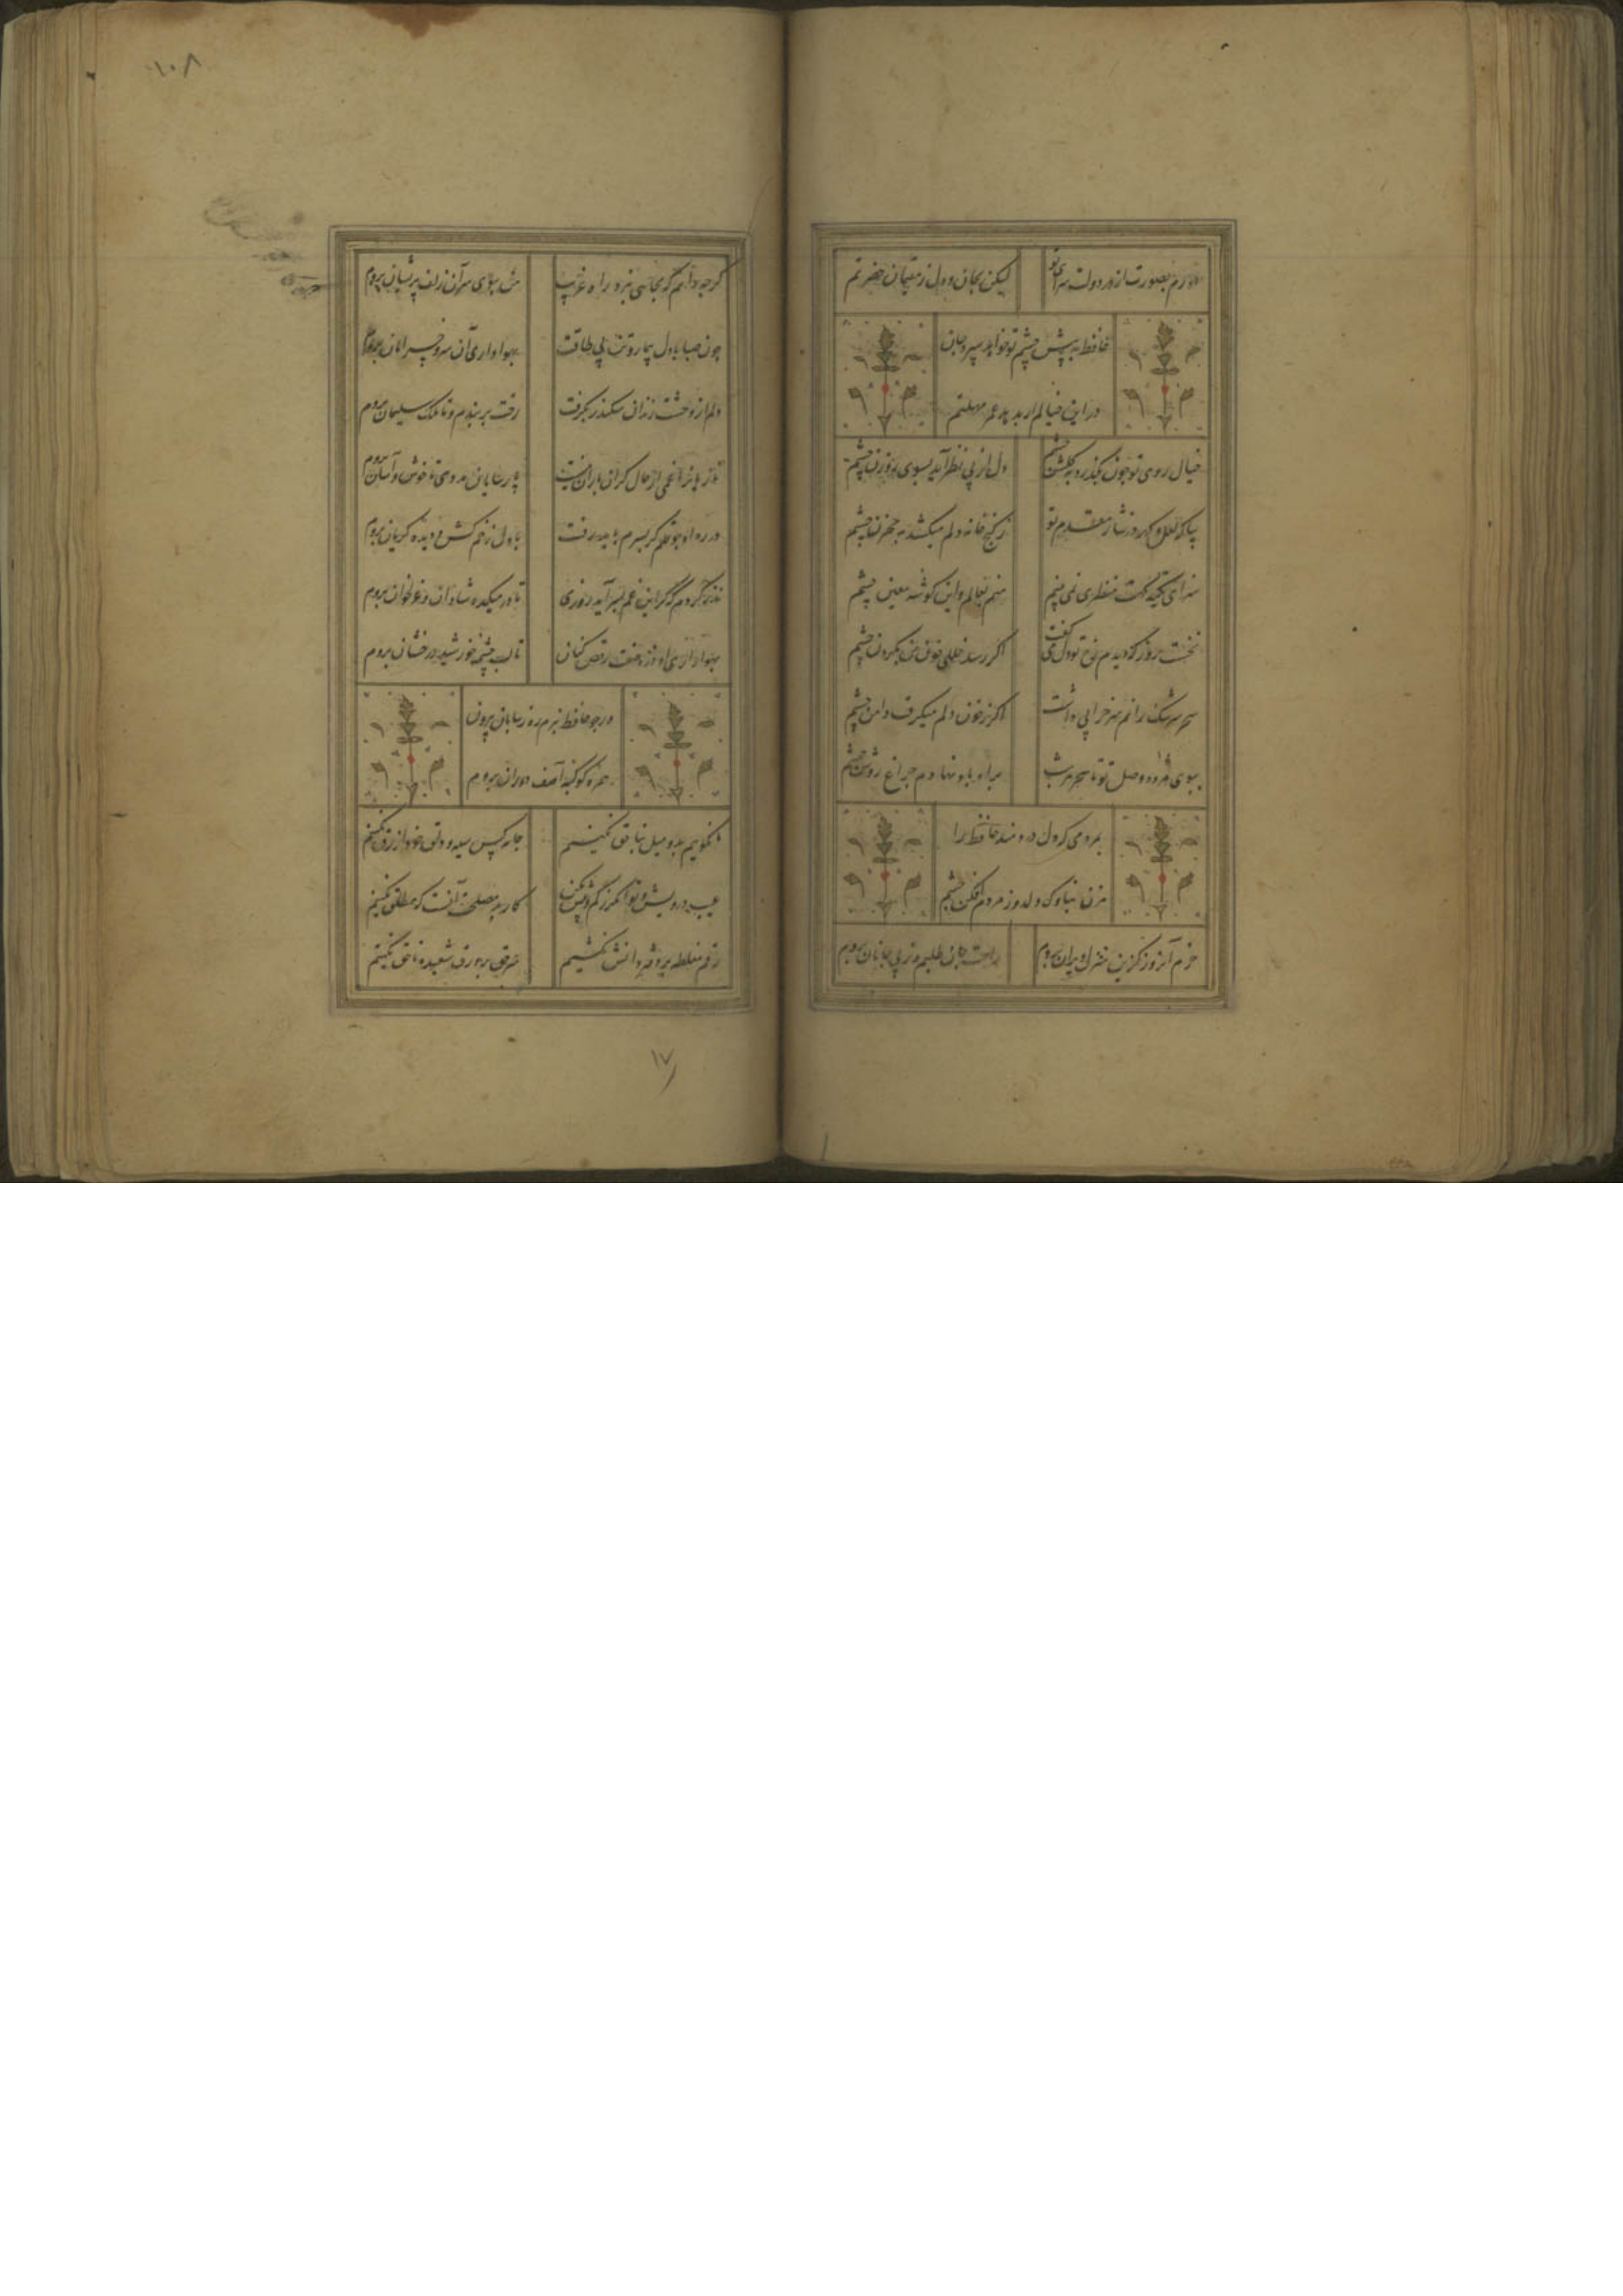 دورم بصورت از در دولت سرای تو
لیکن بجان و دل ز مقیمان حضرتم
حافظ به پیش چشم تو خواهد سپرد جان
در این خیالم ار بدهد عمر مهلتم
خیال روی تو چون بگذرد بگلشن چشم
دل از پی نظر آید بسوی روزن چشم
بیا که لعل و گهر در نثار مقدم تو
ز گنج خانه دل میکشد به مخزن چشم
سزای تکیه گهت منظری نمی بینم
منم بعالم و این گوشه معین چشم
نخست روز که دیدم رخ تو دل می گفت
اگر رسد خللی خون من بگردن چشم
سحر سرشک روانم سر خرابی داشت
گرم نه خون دلم میگرفت دامن چشم
ببوی مژده وصل تو تا سحر هر شب
براه باد نهادم چراغ روشن چشم
بمردمی که دل دردمند حافظ را
مزن بناوک دلدوز مردم افکن چشم
خرم آنروز کزین منزل ویران بروم
راحت جان طلبم وز پی جانان بروم
۱۰۸
گرچه دانم که بجائی نبرد راه غریب
من ببوی سر آن زلف پریشان بروم
چون صبا با دل بیمار و تن بی طاقت
بهواداری آن سرو خرامان بروم
دلم از وحشت زندان سکندر بگرفت
رخت بربندم و تا ملک سلیمان بروم
تازیانرا غمی از حال گران باران نیست
پارسایان مددی تا خوش و آسان بروم
در ره او چو قلم گر بسرم باید رفت
با دل زخم کش و دیده گریان بروم
نذر کردم که گر این غم بسر آید روزی
تا در میکده شادان و غزلخوان بروم
بهواداری او ذره صفت رقص کنان
تا لب چشمه خورشید درخشان بروم
ور چو حافظ نبرم ره ز بیابان بیرون
همره کوکبه آصف دوران بروم
ما نگوییم بد و میل بناحق نکنیم
جامه کس سیه و دلق خود ازرق نکنیم
عیب درویش و توانگر بکم و بیش
کار بد مصلحت آنست که مطلق نکنیم
رقم مغلطه بر دفتر دانش نکشیم
سر حق بر ورق شعبده ملحق نکنیم
۱۷